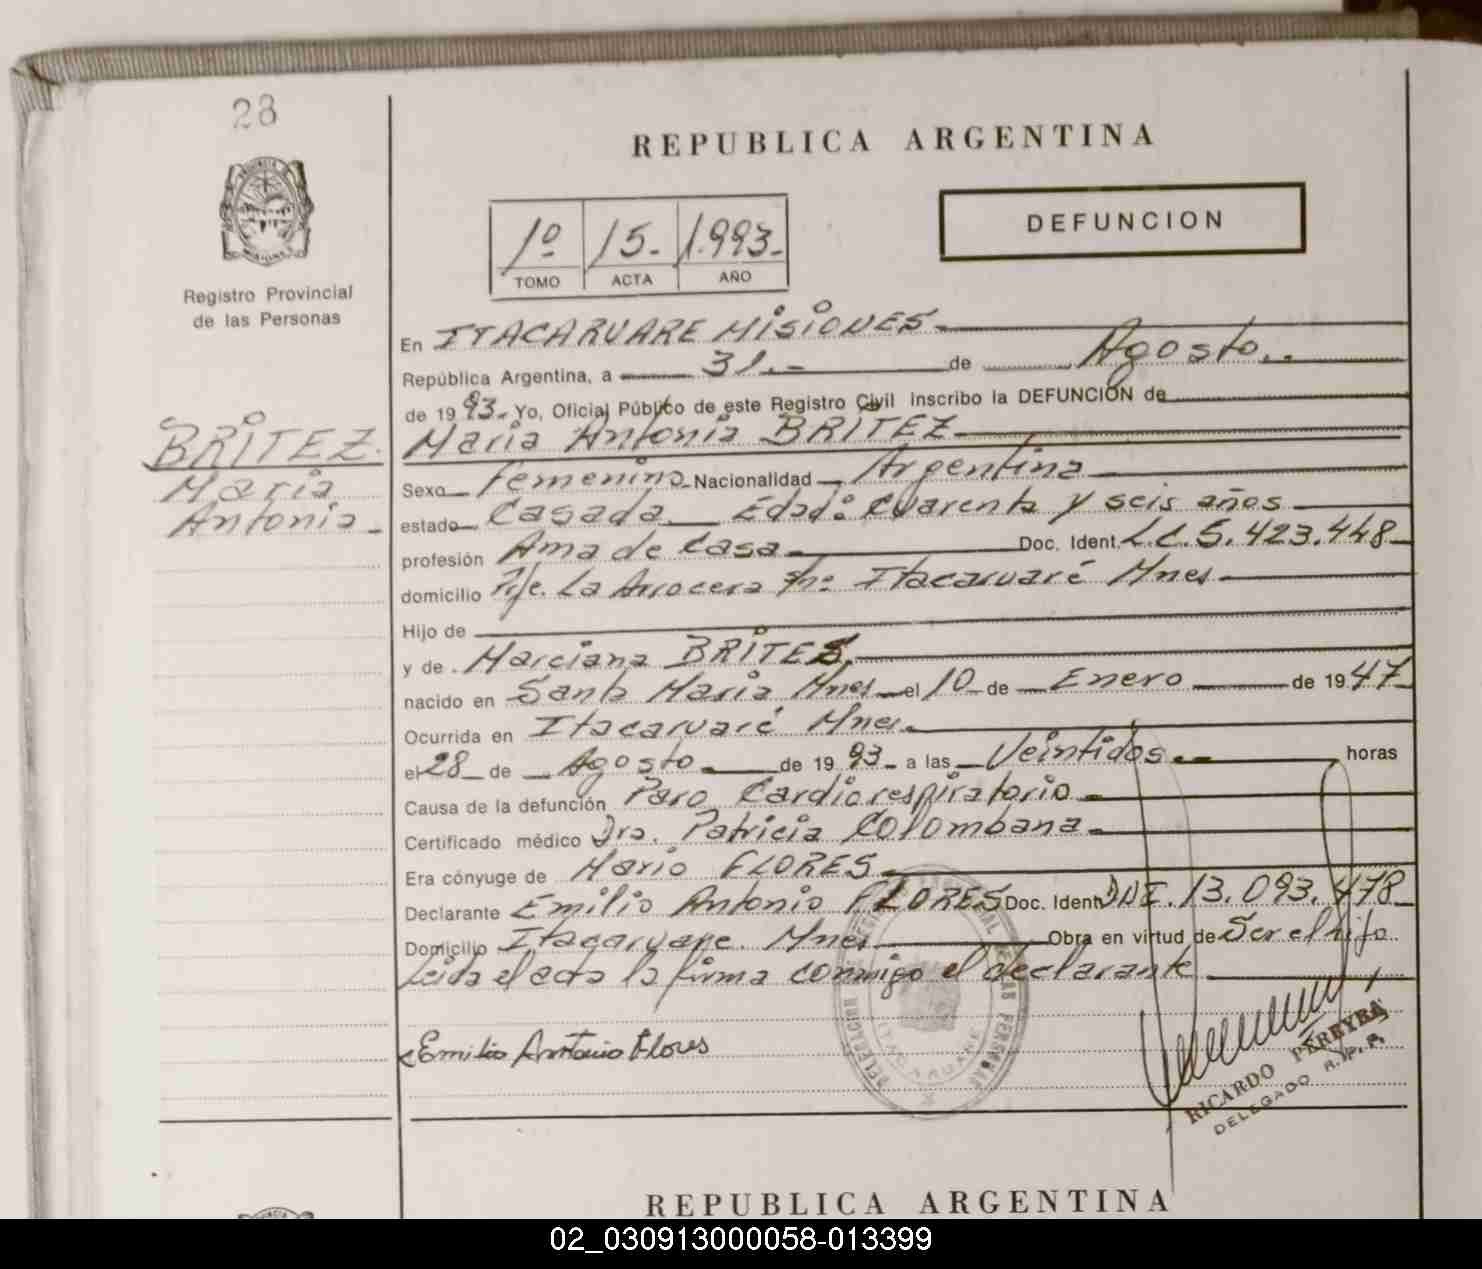 28
REPUBLICA ARGENTINA
DEFUNCION
1º 15- 1.993-
TOMO ACTA AÑO
Registro Provincial
de las Personas
En ITACARUARE MISIONES
República Argentina, a 31.- de Agosto..
de 1993. Yo, Oficial Público de este Registro Civil inscribo la DEFUNCION de
BRITEZ.
Maria
Antonia
Maria Antonia BRITEZ
Sexo Femenino Nacionalidad Argentina
estado Casada Edad: Cuarenta y seis años
profesión Ama de Casa Doc. Ident. L.C. 5.423.448
domicilio Pje. La Arrocera Itacaruaré Mnes
Hijo de
y de Marciana BRITES.
nacido en Santa Maria Mnes el 10 de Enero de 1947
Ocurrida en Itacaruaré Mnes.
el 28 de Agosto de 1993 a las Veintidos horas
Causa de la defunción Paro Cardiorespiratorio
Certificado médico Dra. Patricia Colombana
Era cónyuge de Mario FLORES
Declarante Emilio Antonio FLORES Doc. Ident. DNI. 13.093.478
Domicilio Itacaruare. Mnes Obra en virtud de Ser el hijo
Leida el acta la firma conmigo el declarante
Emilio Antonio Flores
DELEGACION PERSONAS
ITACARUARE
RICARDO PEREYRA
DELEGADO R.P.P.
REPUBLICA ARGENTINA
02_030913000058-013399